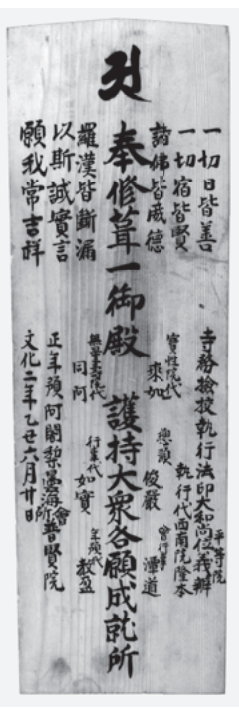 一切日皆善
一切宿皆賢
諸佛皆威德
奉修葺一御殿 護持大衆各願成就所
羅漢皆斷漏
以斯誠實言
願我常吉祥
平等院
寺務撿挍執行法印大和尚位義辯
執行代西南院隆本
寶性院代 來如
俊嚴
道
無量壽院代 同阿
行事代 如實
年預代 教盈
正年預阿闍梨遍海 會所普賢院
文化二年乙丑六月廿日